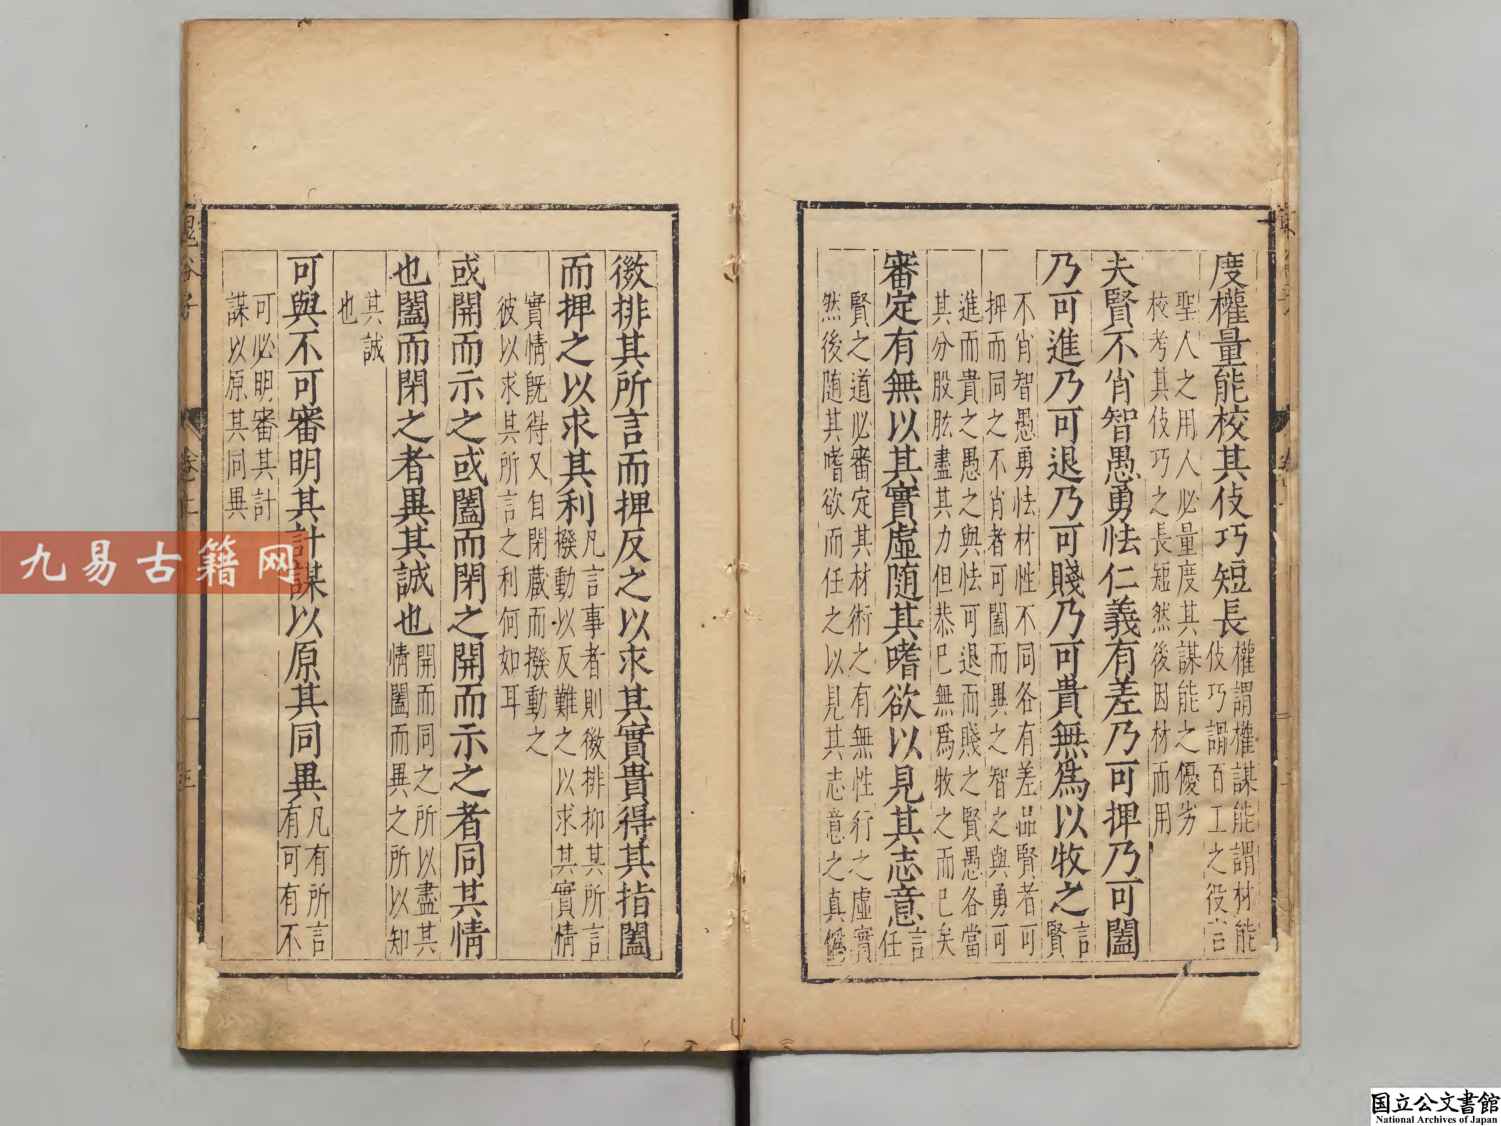 度權量能校其伎巧短長權謂權謀能謂材能
伎巧謂百工之役言
聖人之用人必量度其謀能之優劣
校考其伎巧之長短然後因材而用
夫賢不肖智愚勇怯仁義有差乃可捭乃可闔
乃可進乃可退乃可賤乃可貴無爲以牧之言
賢
不肖智愚勇怯材性不同各有差品賢者可
捭而同之不肖者可闔而異之智之與勇可
進而貴之愚之與怯可退而賤之賢愚各當
其分股肱盡其力但恭已無爲牧之而已矣
審定有無以其實虛隨其嗜欲以見其志意言
任
賢之道必審定其材術之有無性行之虛實
然後隨其嗜欲而任之以見其志意之真僞
微排其所言而捭反之以求其實貴得其指闔
而捭之以求其利凡言事者則微排抑其所言
撥動以反難之以求其實情
實情既得又自閉藏而撥動之
彼以求其所言之利何如耳
或開而示之或闔而閉之開而示之者同其情
也闔而閉之者異其誠也開而同之所以盡其
情闔而異之所以知
其誠
也
可與不可審明其計謀以原其同異凡有所言
有可有不
可必明審其計
謀以原其同異
鬼谷子
卷上
九易古籍网
国立公文書館
National Archives of Japan